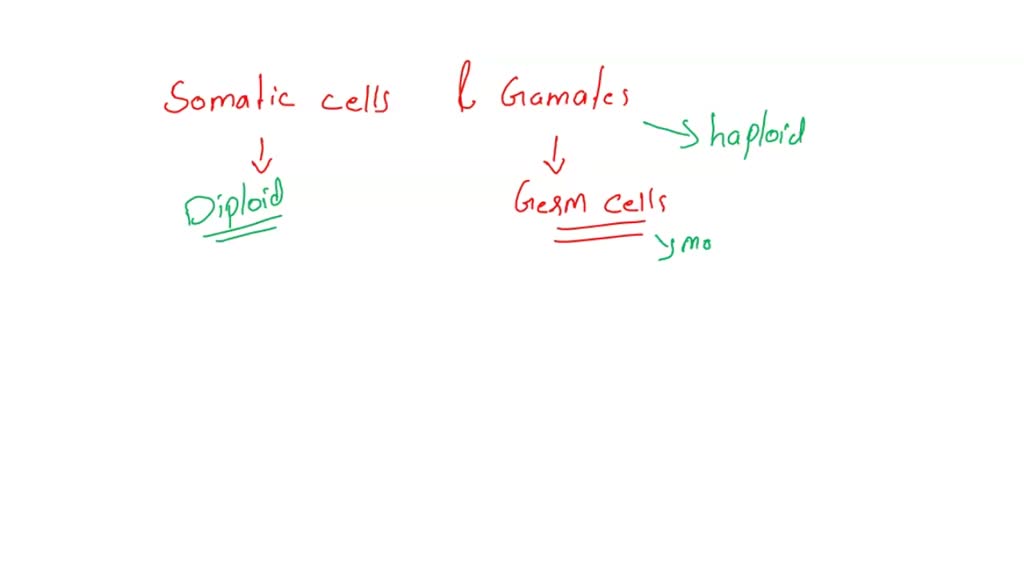 Somatic cells & Gamates
haploid
Diploid
Germ cells
mo